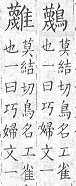 莫結切鳥名工雀
也一曰巧婦文一
莫結切鳥名工雀
也一曰巧婦文一